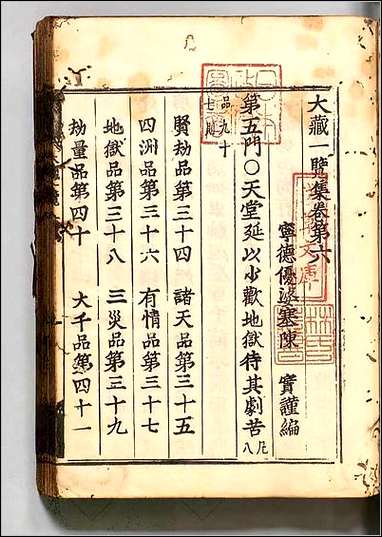 大藏一覽集卷第六
寧德優婆塞陳 實謹編
第五門〇天堂延以少歡地獄待其劇苦凡八
品九十
七則
賢劫品第三十四 諸天品第三十五
四洲品第三十六 有情品第三十七
地獄品第三十八 三災品第三十九
劫量品第四十 大千品第四十一